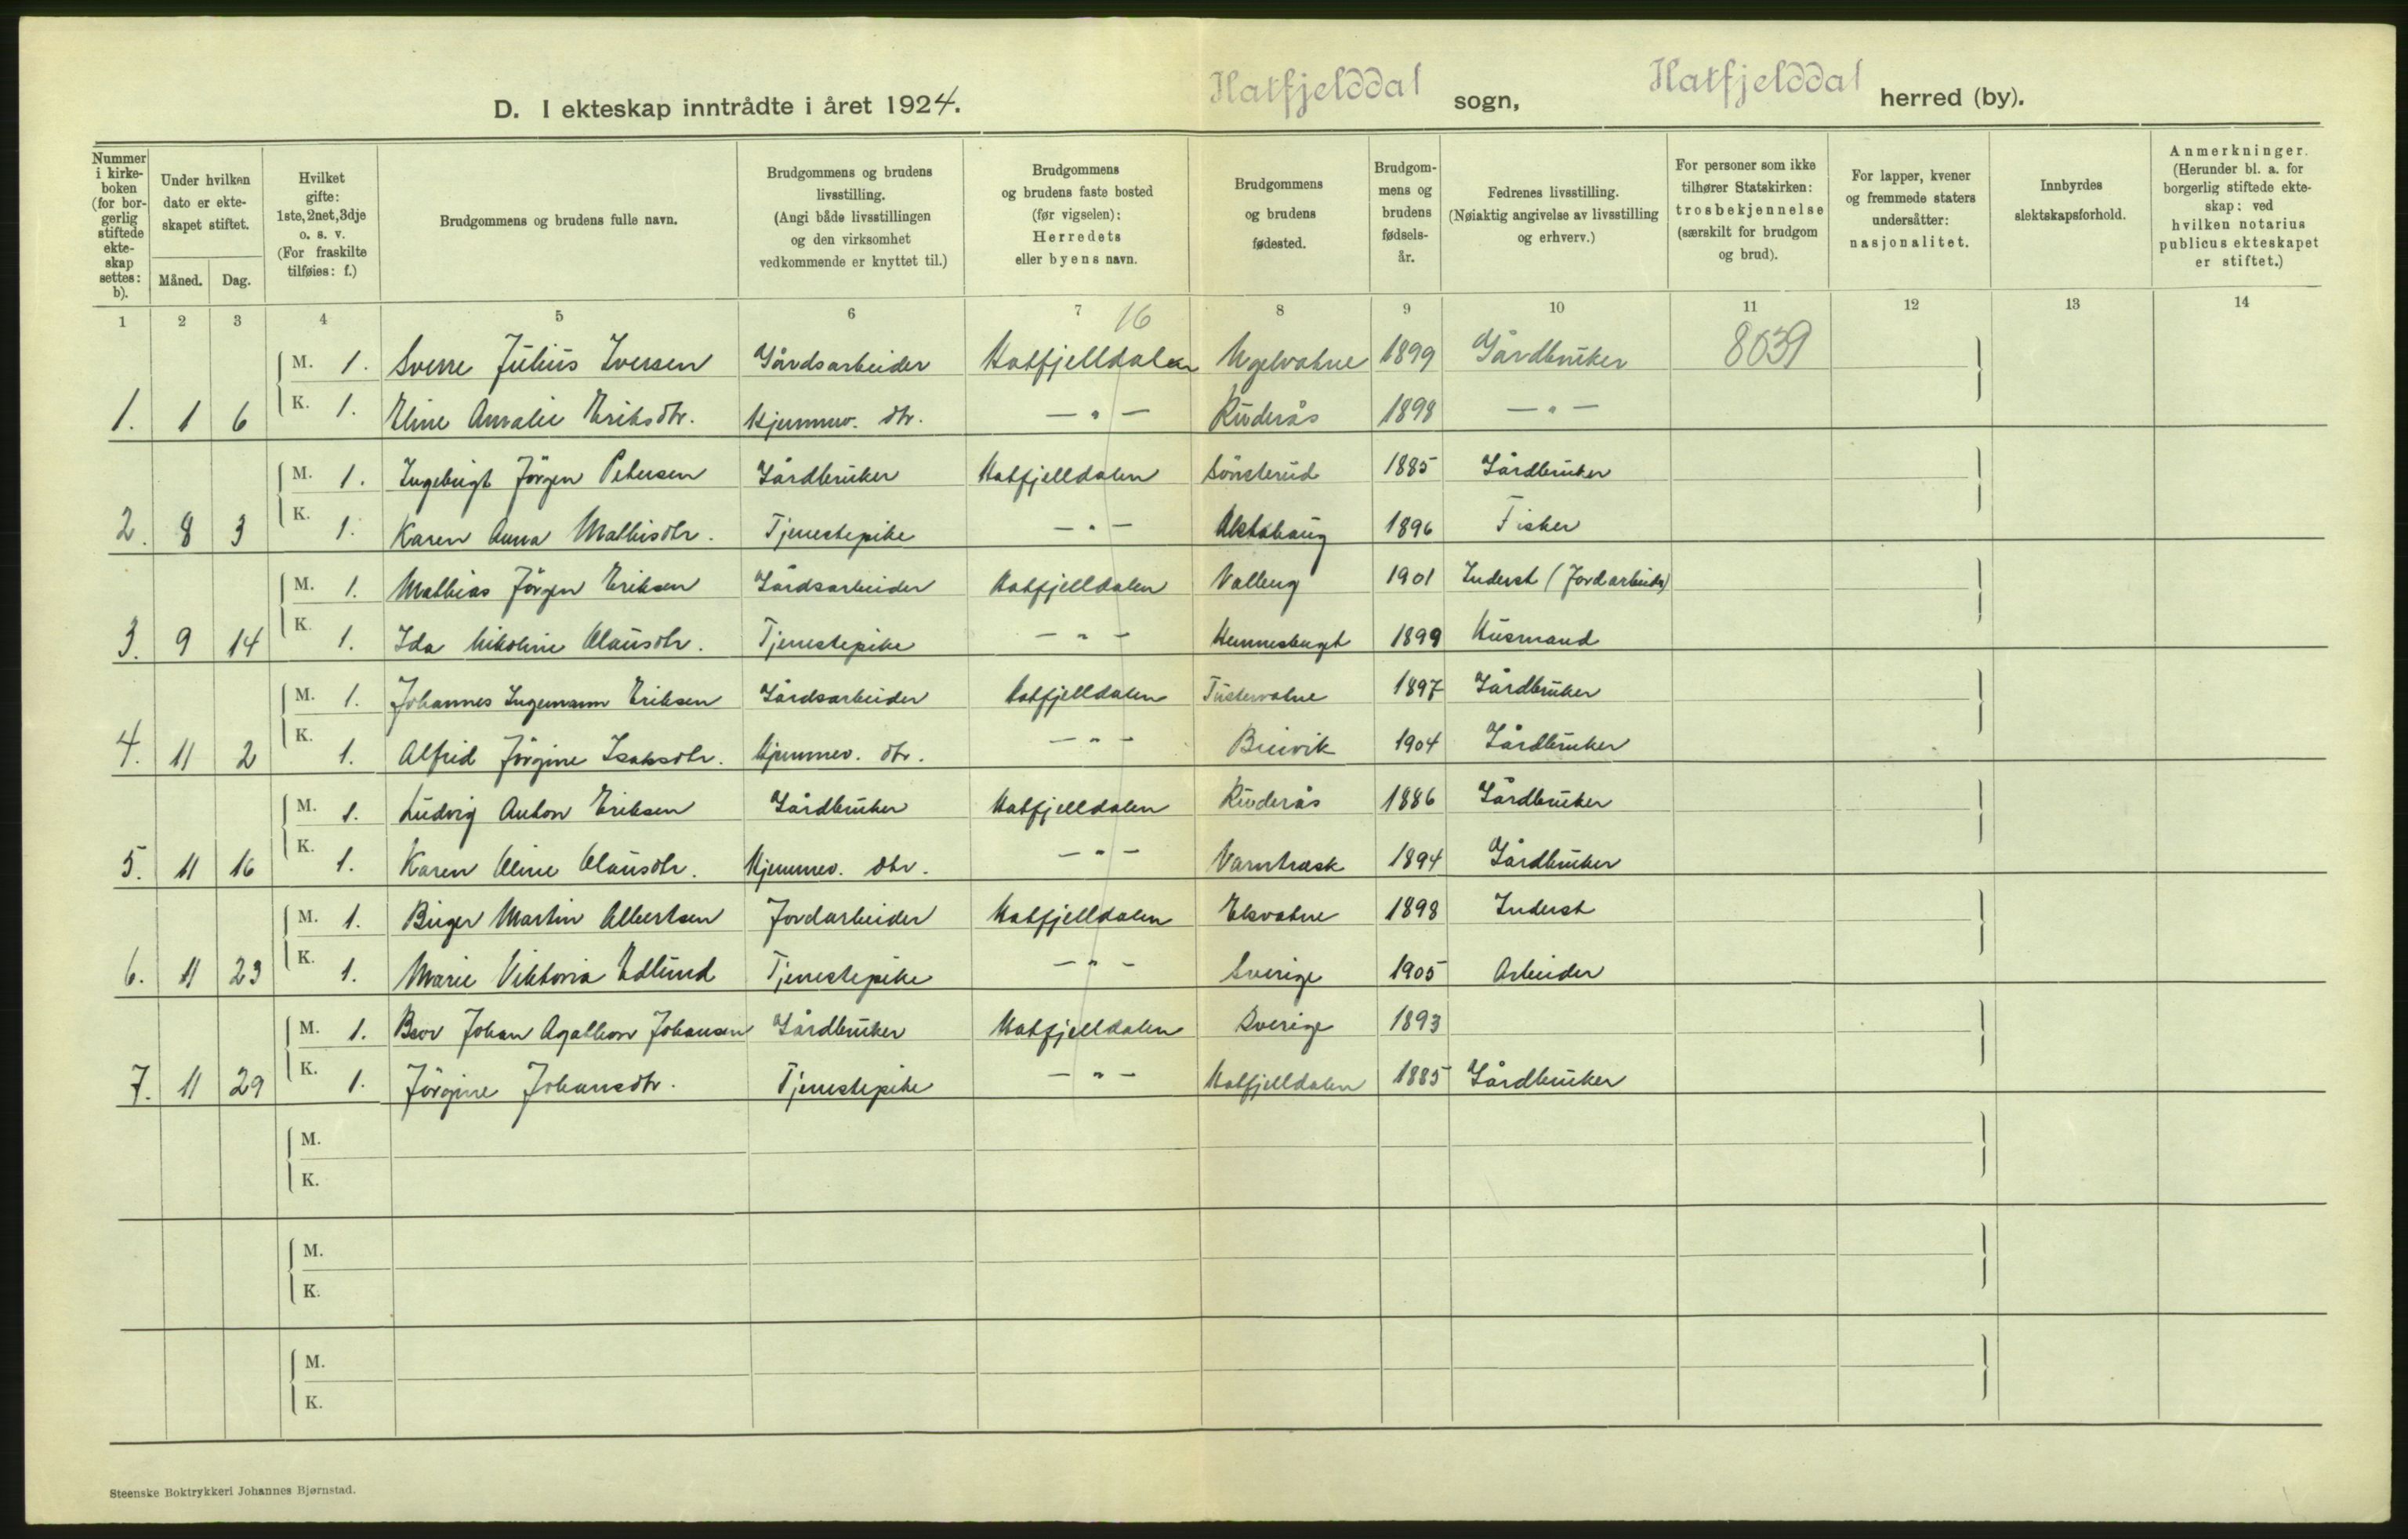 D. I ekteskap inntrådte i året 1924. Hatfjelddal sogn, Hatfjelddal herred (by).
Nummer i kirkeboken (for borgerlig stiftede ekteskap settes: b).
Under hvilken dato er ekteskapet stiftet.
Måned. Dag.
Hvilket gifte: 1ste, 2net, 3dje o. s. v. (For fraskilte tilføies: f.)
Brudgommens og brudens fulle navn.
Brudgommens og brudens livsstilling. (Angi både livsstillingen og den virksomhet vedkommende er knyttet til.)
Brudgommens og brudens faste bosted (før vigselen): Herredets eller byens navn.
Brudgommens og brudens fødested.
Brudgommens og brudens fødselsår.
Fedrenes livsstilling. (Nøiaktig angivelse av livsstilling og erhverv.)
For personer som ikke tilhører Statskirken: trosbekjennelse (særskilt for brudgom og brud).
For lapper, kvener og fremmede staters undersåtter: nasjonalitet.
Innbyrdes slektskapsforhold.
Anmerkninger. (Herunder bl. a. for borgerlig stiftede ekteskap: ved hvilken notarius publicus ekteskapet er stiftet.)
1 2 3 4 5 6 7 8 9 10 11 12 13 14
16
8039
M. 1. Sverre Julius Iversen Gårdsarbeider Hatfjelldalen Ugelvatne 1899 Gårdbruker
1. 1 6 K. 1. Eline Amalie Eriksdtr. Hjemmev. dtr. — " — Kivderås 1898 — " —
M. 1. Ingebrigt Jörgen Petersen Gårdbruker Hatfjelldalen Sönsterud 1885 Gårdbruker
2. 8 3 K. 1. Karen Anna Mathisdtr. Tjenestepike — " — Alstahaug 1896 Fisker
M. 1. Mathias Jörgen Eriksen Gårdsarbeider Hatfjelldalen Valberg 1901 Inderst (Jordarbeider)
3. 9 14 K. 1. Ida Nikoline Olausdtr. Tjenestepike — " — 1899 Husmand
M. 1. Johannes Ingemann Eriksen Gårdsarbeider Hatfjelldalen Tustervatne 1897 Gårdbruker
4. 11 2 K. 1. Alfrid Jörgine Isaksdtr. Hjemmev. dtr. — " — Breivik 1904 Gårdbruker
M. 1. Ludvig Anton Eriksen Gårdbruker Hatfjelldalen Kivderås 1886 Gårdbruker
5. 11 16 K. 1. Karen Oline Olausdtr. Hjemmev. dtr. — " — Varntræsk 1894 Gårdbruker
M. 1. Birger Martin Albertsen Jordarbeider Hatfjelldalen Elsvatne 1898 Inderst
6. 11 23 K. 1. Marie Viktoria Edlund Tjenestepike — " — Sverige 1905 Arbeider
M. 1. Johan Agathon Johansen Gårdbruker Hatfjelldalen Sverige 1893
7. 11 29 K. 1. Jörgine Johansdtr. Tjenestepike — " — Hatfjelldalen 1885 Gårdbruker
M.
K.
M.
K.
M.
K.
Steenske Boktrykkeri Johannes Bjørnstad.